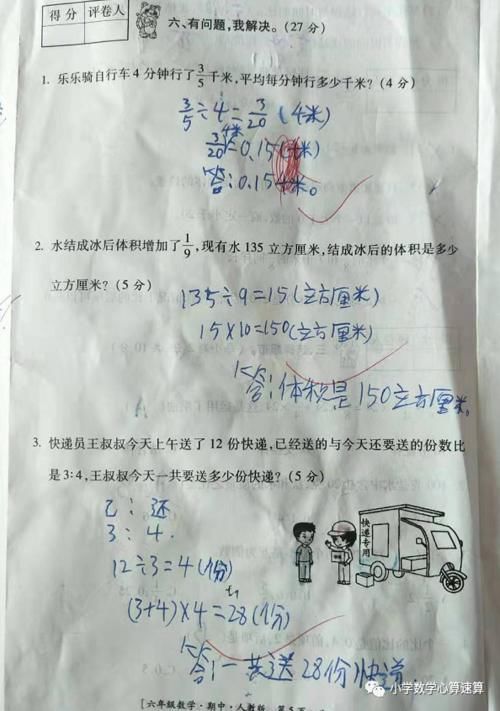 得分 评卷人
六、有问题,我解决。(27分)
1. 乐乐骑自行车4分钟行了3/5千米,平均每分钟行多少千米?(4分)
3/5÷4=3/20(千米)
3/20千米=0.15(千米)
答:0.15千米。
2. 水结成冰后体积增加了1/9,现有水135立方厘米,结成冰后的体积是多少
立方厘米?(5分)
135÷9=15(立方厘米)
15×10=150(立方厘米)
答:体积是150立方厘米。
3. 快递员王叔叔今天上午送了12份快递,已经送的与今天还要送的份数比
是3:4,王叔叔今天一共要送多少份快递?(5分)
已:还
3:4.
12÷3=4(份)
(3+4)×4=28(份)
答:一共送28份快递。
快递专用
[六年级数学·期中·人教版 第5页
小学数学心算速算